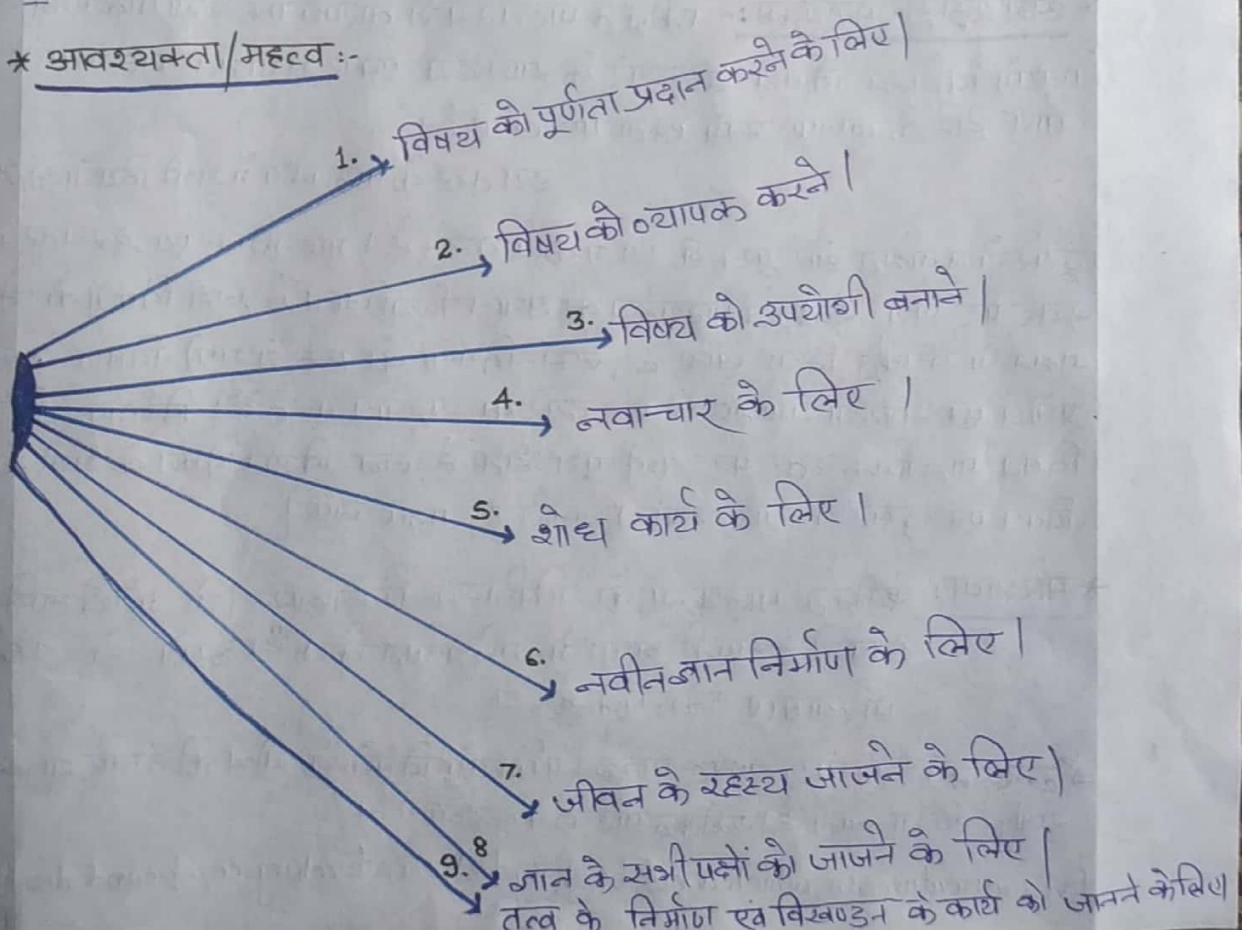 * आवश्यक्ता/महत्व :-
1. विषय को पूर्णता प्रदान करने के लिए।
2. विषय को व्यापक करने।
3. विषय को उपयोगी बनाने।
4. नवाचार के लिए।
5. शोध कार्य के लिए।
6. नवीन ज्ञान निर्माण के लिए।
7. जीवन के रहस्य जानने के लिए।
8 ज्ञान के सभी पक्षों को जानने के लिए।
9. तत्व के निर्माण एवं विखण्डन के कार्य को जानने के लिए।